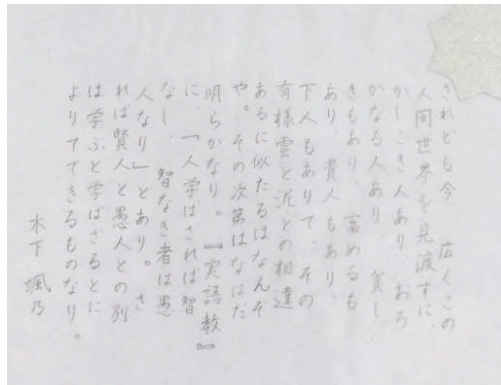 されども今 広くこの
人間世界を見渡すに
かしこき人あり おろ
かなる人あり 貧し
きもあり 富めるも
あり 貴人もあり
下人もありて その
有様雲と泥との相違
あるに似たるはなんぞ
や。その次第はなはだ
明らかなり。『実語教』
に、「人学ばざれば智
なし 智なき者は愚
人なり」とあり。 さ
れば賢人と愚人との別
は学ぶと学ばざるとに
よりてできるものなり。
木下 颯乃